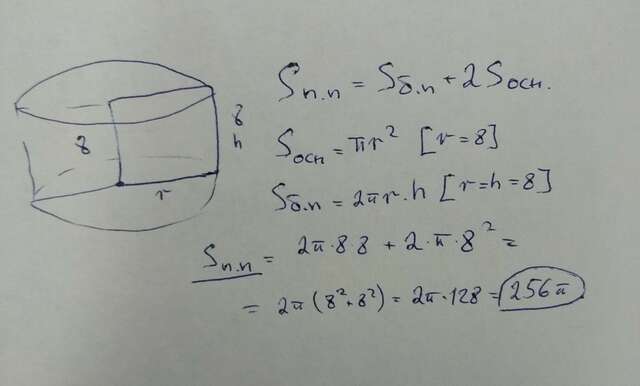 8
8
h
r
Sп.п = Sб.п + 2Sосн.
Sосн = πr² [r=8]
Sб.п = 2πr·h [r=h=8]
Sп.п = 2π·8·8 + 2·π·8² =
= 2π(8²+8²) = 2π·128 = 256π